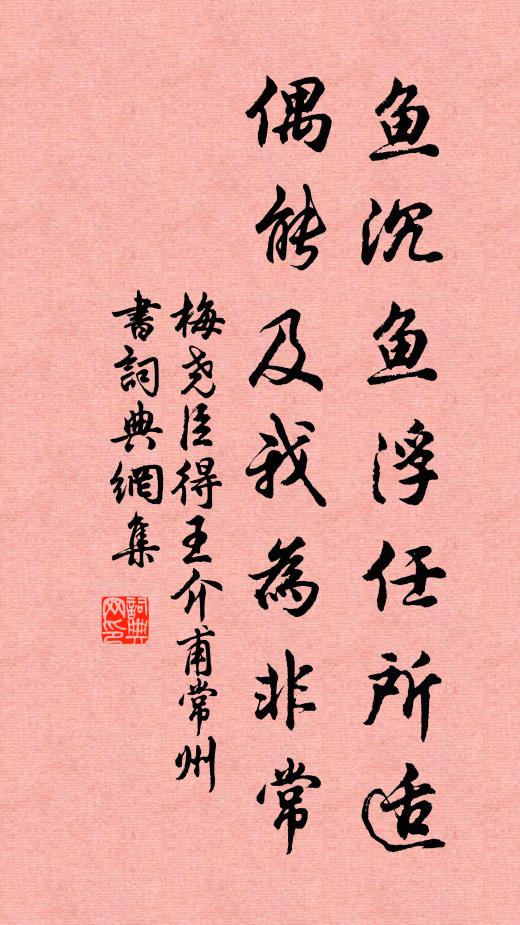 鱼沉鱼浮任所适
偶能及我为非常
梅尧臣得王介甫常州
書詞典網集
詞典网印